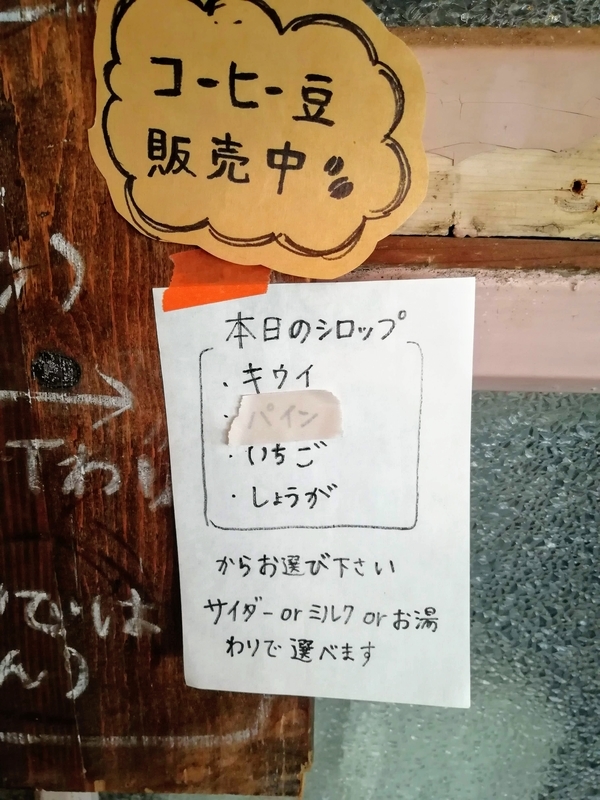 コーヒー豆
販売中
本日のシロップ
・キウイ
・パイン
・いちご
・しょうが
からお選び下さい
サイダー or ミルク or お湯
わりで選べます